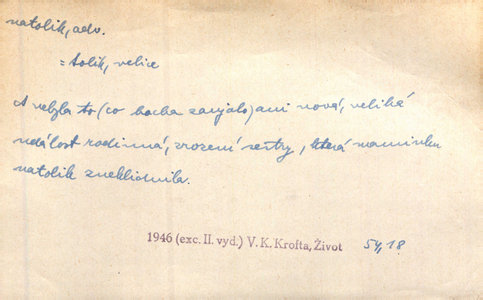 natolik, adv.
= tolik, velice
A nebyla to (co hocha zaujalo) ani nová, veliká
událost rodinná, zrození sestry, která maminku
natolik zneklidnila.
1946 (exc. II. vyd.) V. K. Krofta, Život 54, 18